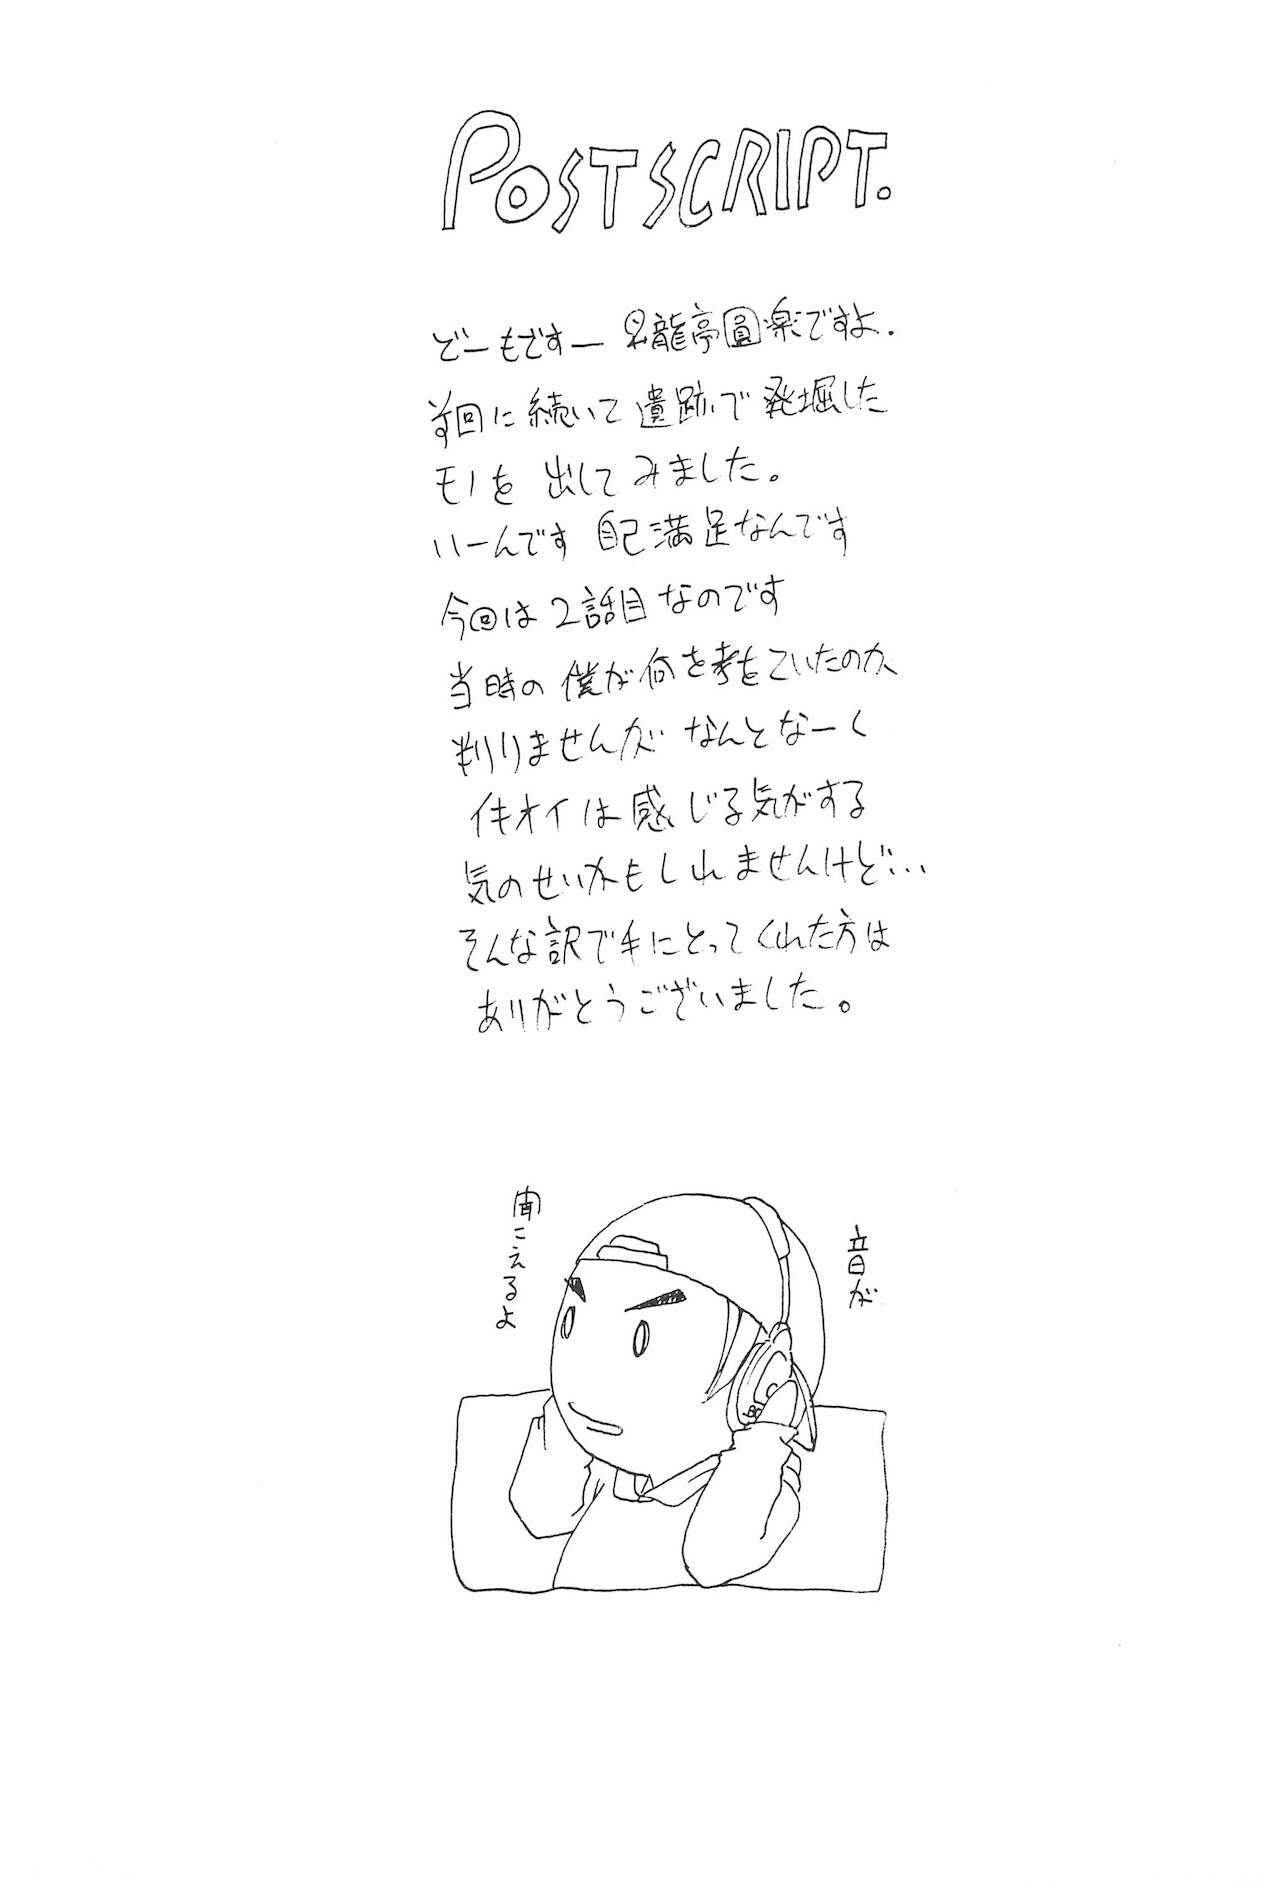 POSTSCRIPT.
どーもですー 昇龍亭圓楽ですよ.
前回に続いて遺跡で発掘した
モノを 出してみました。
いーんです 自己満足なんです
今回は2話目なのです
当時の僕が何を考えていたのか、
判りませんが なんとなーく
イキオイは感じる気がする
気のせいかもしれませんけど…
そんな訳で手にとってくれた方は
ありがとうございました。
音が
聞こえるよ